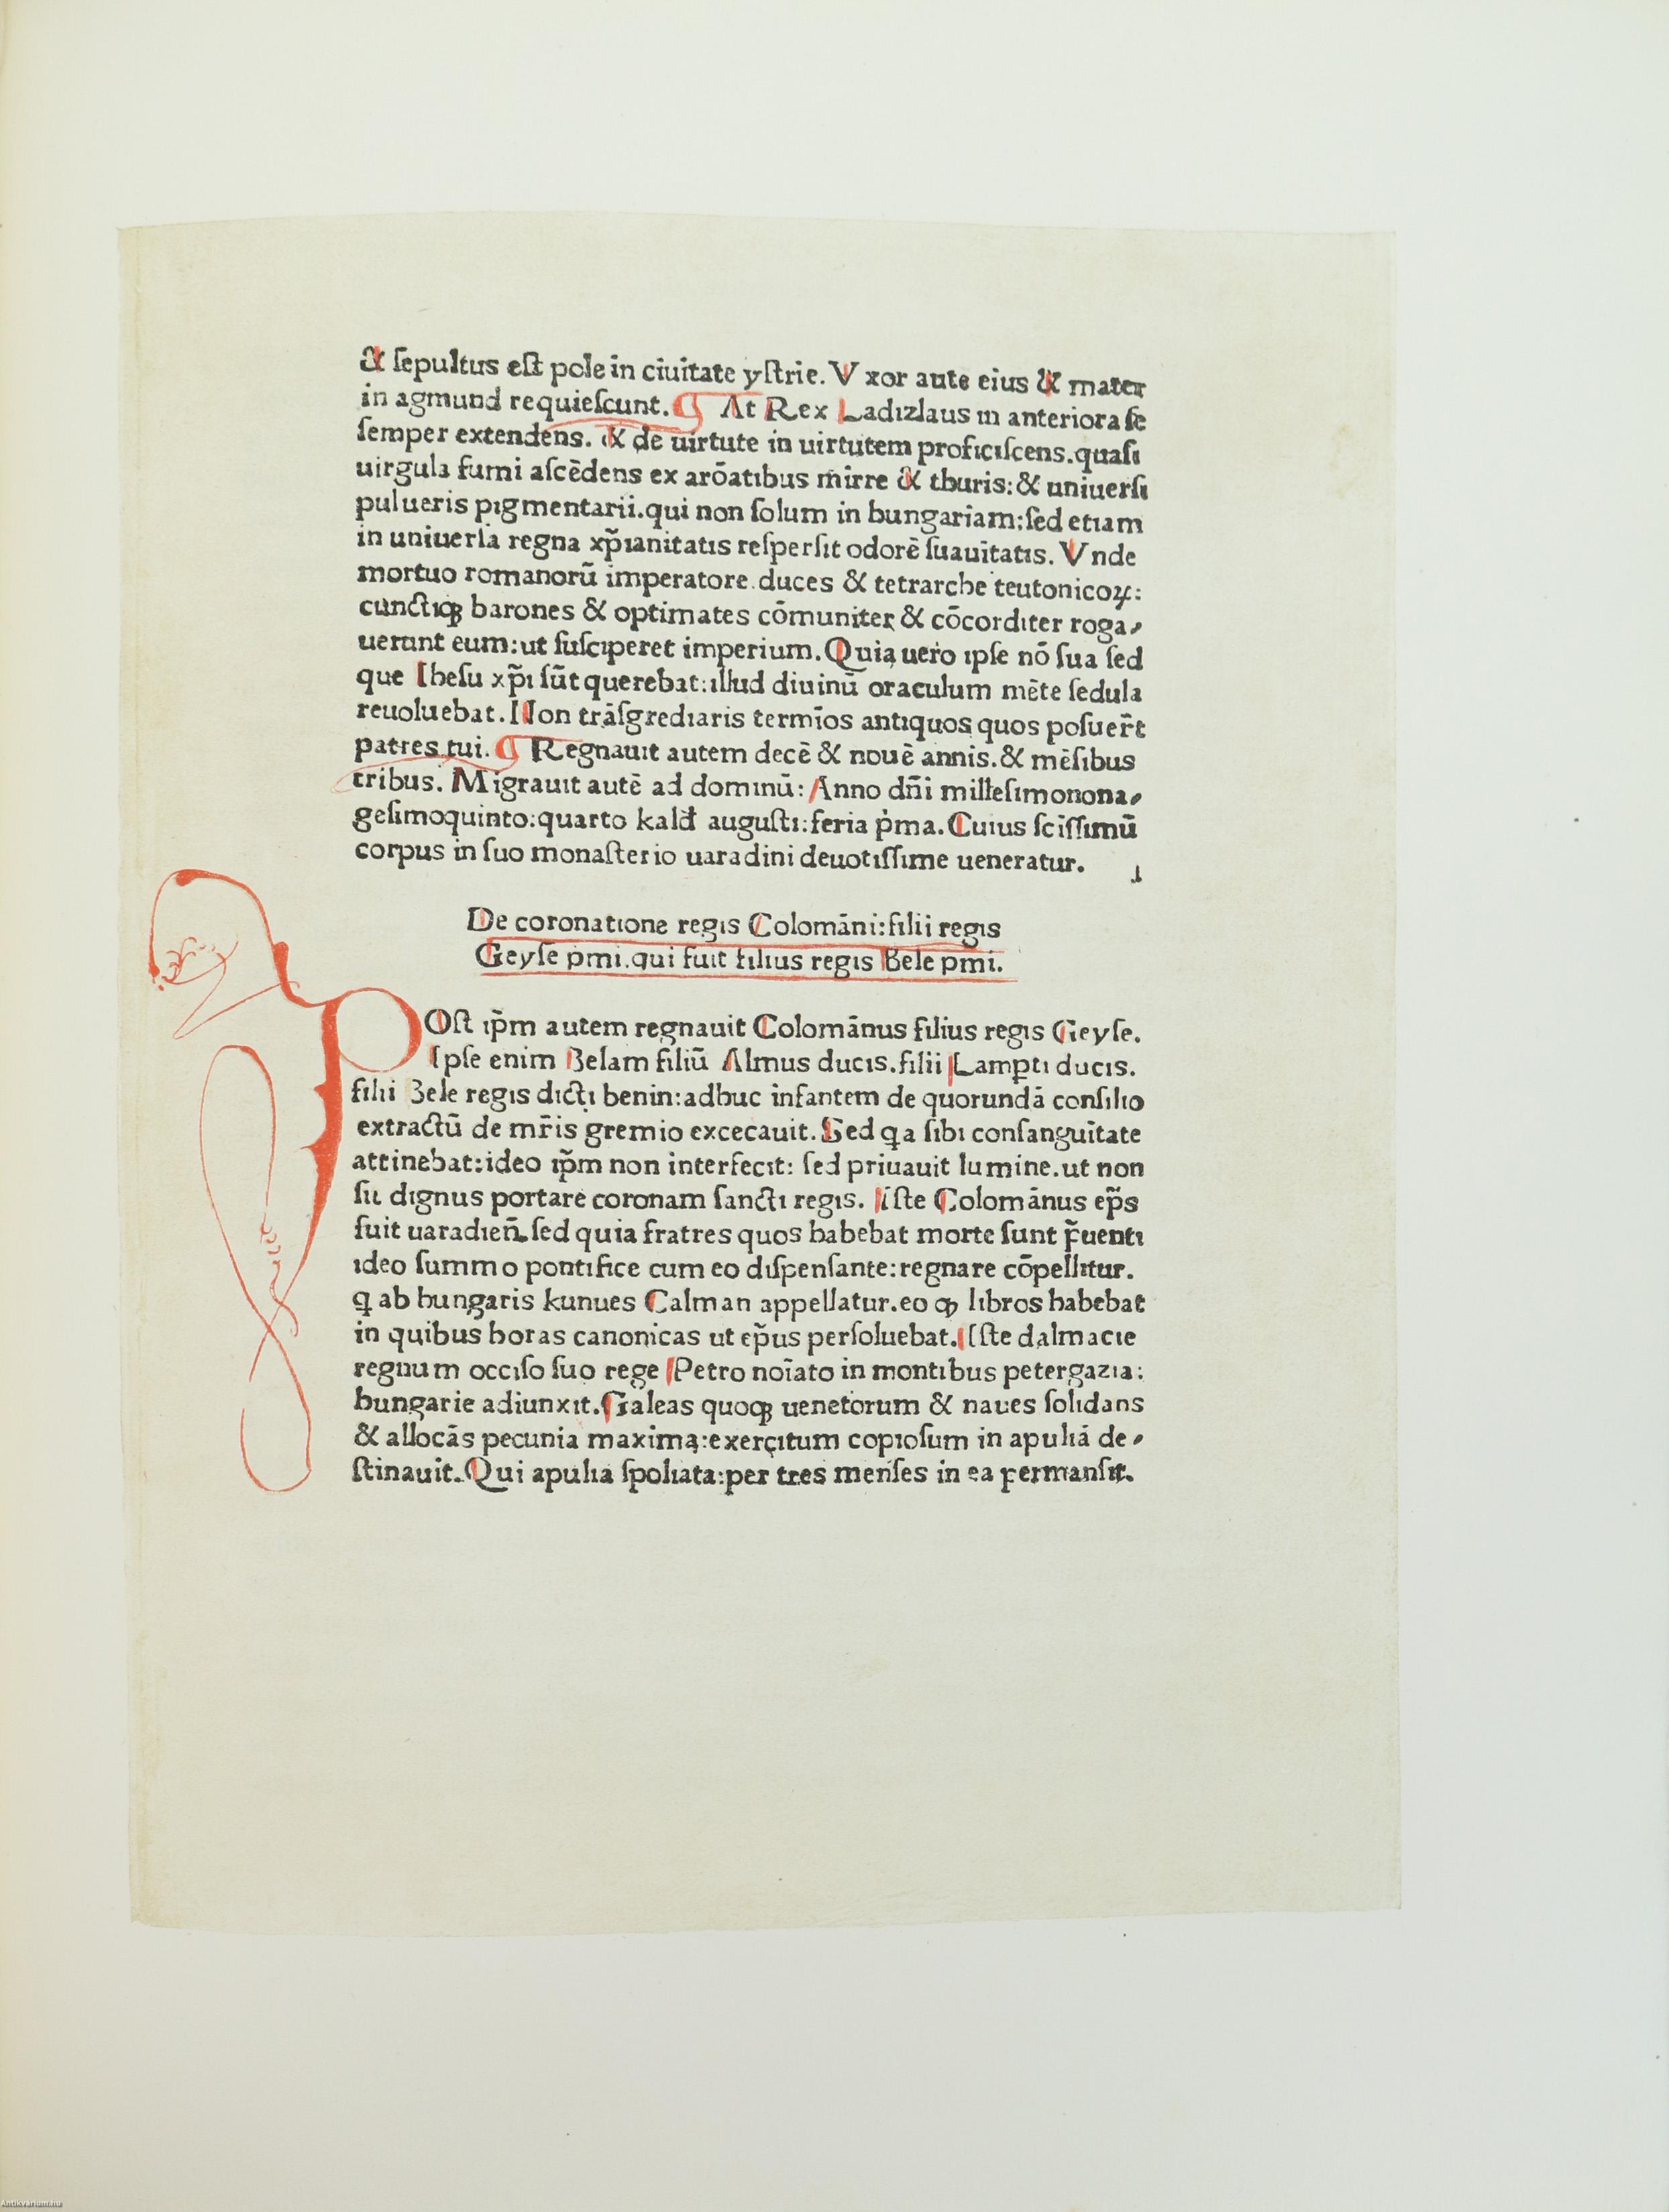 & ſepultus eſt pole in ciuitate yſtrie. Vxor aute eius & mater
in agmund requieſcunt. ¶ At Rex Ladizlaus in anteriora ſe
ſemper extendens. & de uirtute in uirtutem proficiſcens.quaſi
uirgula fumi aſcēdens ex arōatibus mirre & thuris:& uniuerſi
pulueris pigmentarii.qui non ſolum in hungariam:ſed etiam
in uniuerſa regna xp̄ianitatis reſperſit odorē ſuauitatis. Vnde
mortuo romanorū imperatore.duces & tetrarche teutonicoꝝ:
cunctiqꝫ barones & optimates cōmuniter & cōcorditer roga⸗
uerunt eum:ut ſuſciperet imperium. Quia uero ipſe nō ſua ſed
que Iheſu xp̄i ſūt querebat:illud diuinū oraculum mēte ſedula
reuoluebat. Non trāſgrediaris termīos antiquos quos poſuer̄t
patres tui. ¶ Regnauit autem decē & nouē annis.& mēſibus
tribus. Migrauit autē ad dominū: Anno dn̄i milleſimonona⸗
geſimoquinto:quarto kalđ auguſti:feria p̍ma. Cuius ſciſſimū
corpus in ſuo monaſterio uaradini deuotiſſime ueneratur.
De coronatione regis Colomāni:filii regis
Geyſe pmi.qui fuit filius regis Bele pmi.
POſt ip̄m autem regnauit Colomānus filius regis Geyſe.
Ipſe enim Belam filiū Almus ducis.filii Lamꝑti ducis.
filii Bele regis dicti benin:adhuc infantem de quorundā conſilio
extractū de mr̄is gremio excecauit. Sed qa ſibi conſanguītate
attinebat:ideo ip̄m non interfecit: ſed priuauit lumine.ut non
ſit dignus portare coronam ſancti regis. Iſte Colomānus ep̄s
fuit uaradien̄.ſed quia fratres quos habebat morte ſunt p̄uenti
ideo ſummo pontifice cum eo diſpenſante:regnare cōpellitur.
q ab hungaris kunues Calman appellatur.eo ꝙ libros habebat
in quibus horas canonicas ut ep̄us perſoluebat. Iſte dalmacie
regnum occiſo ſuo rege Petro noīato in montibus petergazia:
hungarie adiunxit. Galeas quoqꝫ uenetorum & naues ſolidans
& allocās pecunia maxima:exercitum copioſum in apuliā de⸗
ſtinauit. Qui apulia ſpoliata:per tres menſes in ea permanſit.
Antikvarium.hu